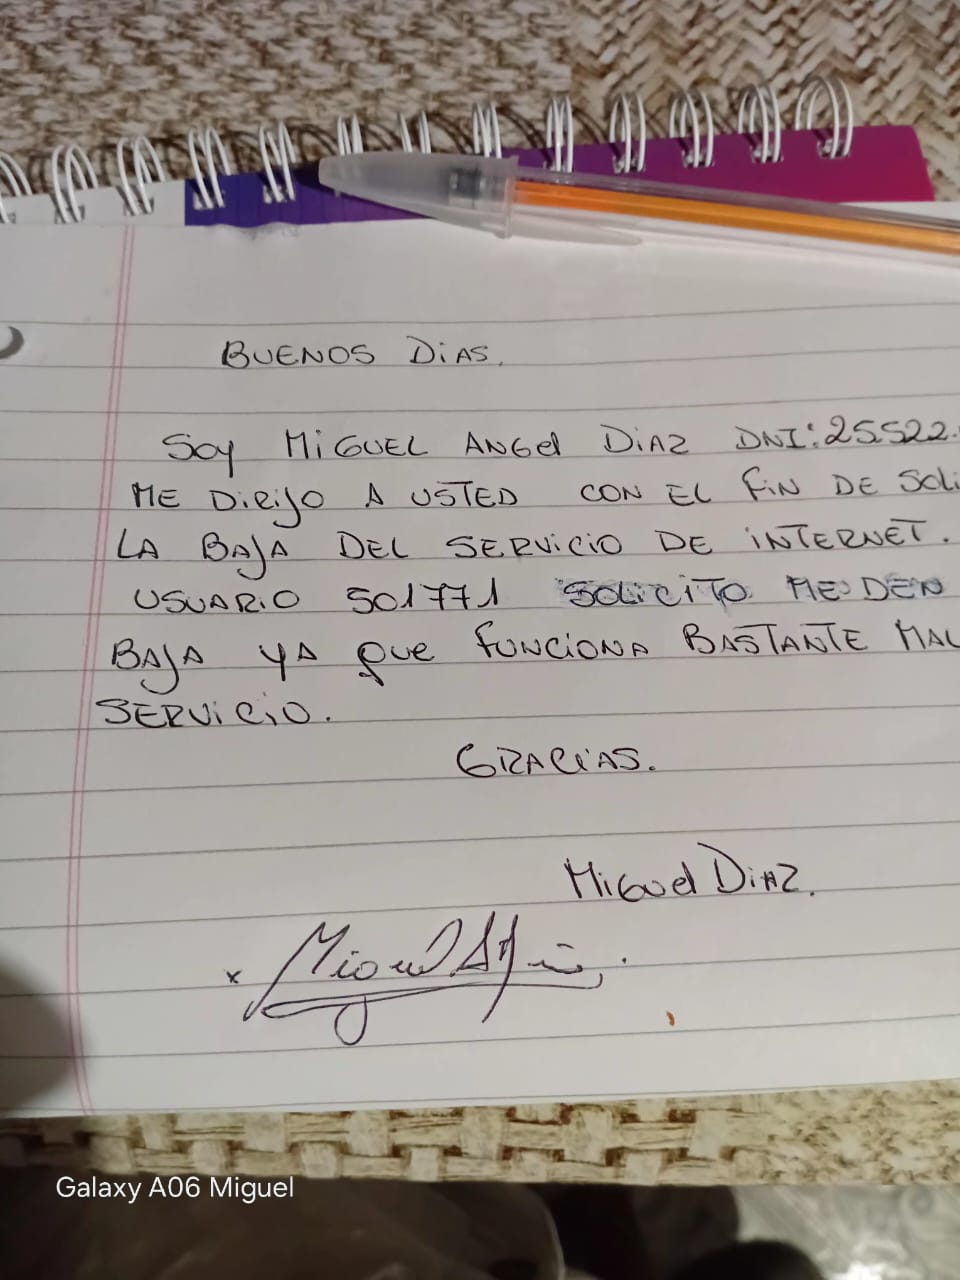 BUENOS DiAS.
Soy MiGUEL ANGEl DiAZ DNI: 25.522.
ME DIRIJO A USTED CON EL FiN DE SOLi
LA BAJA DEL SERVICIO DE iNTERNET.
USUARiO 501771 SOLICITO ME DEN
BAJA YA QUE FUNCiONA BASTANTE MAL
SERViCiO.
GRACiAS.
MiGuel DiAZ.
x Miguel
Galaxy A06 Miguel